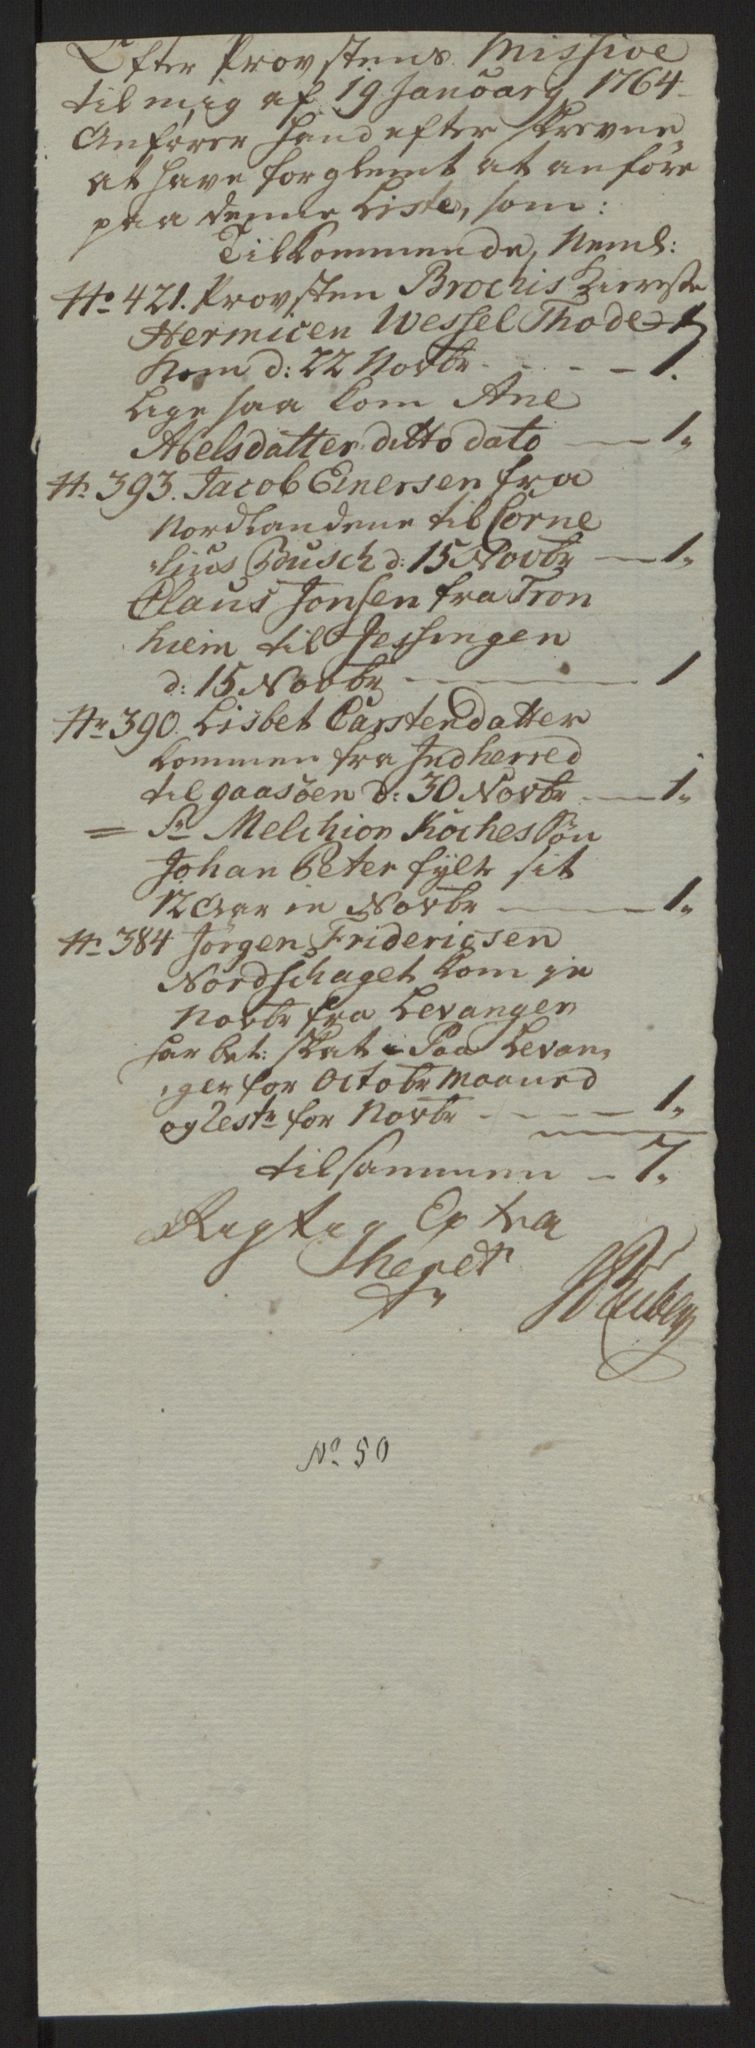 Efter Provstens Missive
til mig af 19 Januarÿ 1764
Anfører hand efter skrevne
at have forglemt at anføre
paa denne Liste, som:
Tilkommende, Neml:
No 421. Provsten Brochis Kiereste
Hermicen Wessel Thode
Kom d: 22 Novbr - - - 1.
Lige saa kom Ane
Abelsdatter ditto dato — 1"
No 393. Jacob Einersen fra
Nordlandene til Corne
lius Busch d: 15 Novbr — 1"
Claus Jonsen fra Tron
hiem til
d: 15 Novbr — 1
No 390. Lisbet Carstendatter
kommen fra Indherred
til gaasøen d: 30 Novbr — 1"
= Sr Melchior Koches Søn
Johan Peter fÿlt sit
12 Aar in Novbr — 1"
No 384 Jørgen Fridericsen
Nordschaget kom in
Novbr fra Levanger
har bet: skat Paa Levan
ger for Octobr Maaned
og restr for Novbr - - - 1"
tilsammen - 7"
Rigtig Extra
No 50